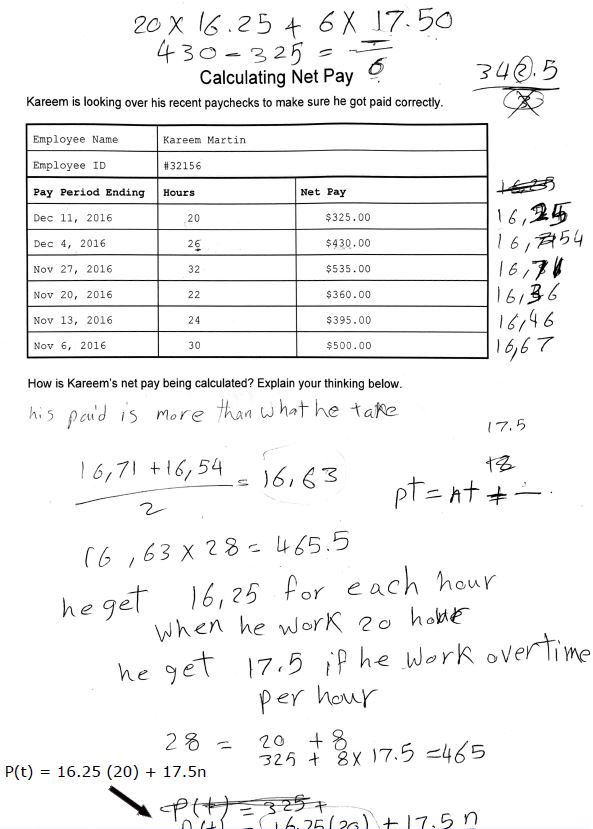 20 X 16.25 + 6 X 17.50
430 - 325 = 6
Calculating Net Pay
342.5
3
Kareem is looking over his recent paychecks to make sure he got paid correctly.
Employee Name Kareem Martin
Employee ID #32156
Pay Period Ending Hours Net Pay
16,25
Dec 11, 2016 20 $325.00 16,25
Dec 4, 2016 26 $430.00 16,54
Nov 27, 2016 32 $535.00 16,71
Nov 20, 2016 22 $360.00 16,36
Nov 13, 2016 24 $395.00 16,46
Nov 6, 2016 30 $500.00 16,67
How is Kareem's net pay being calculated? Explain your thinking below.
his paid is more than what he take
17.5
+8
16,71 + 16,54 = 16,63
2
pt = nt +
16,63 X 28 = 465.5
he get 16,25 for each hour
when he work 20 hour
he get 17.5 if he work overtime
per hour
28 = 20 + 8
325 + 8X 17.5 = 465
P(t) = 16.25 (20) + 17.5n
P(t) = 325 +
P(t) = (16.25(20) + 17.5 n